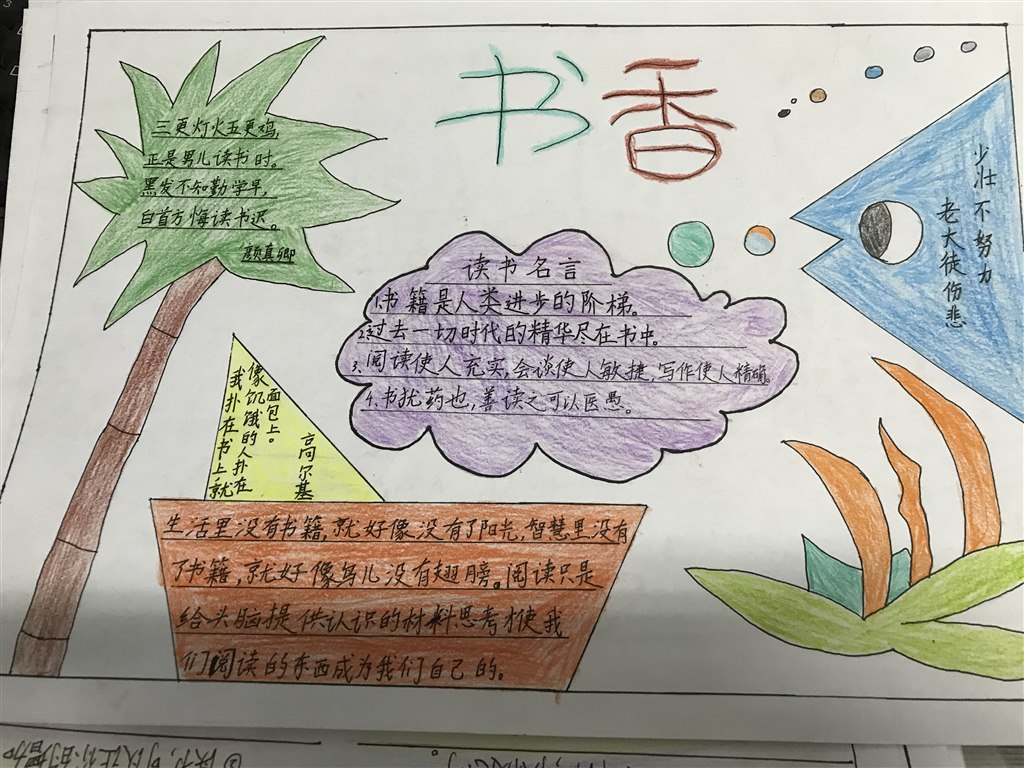 书香
三更灯火五更鸡,
正是男儿读书时。
黑发不知勤学早,
白首方悔读书迟。
颜真卿
少壮不努力
老大徒伤悲
读书名言
1.书籍是人类进步的阶梯。
2.过去一切时代的精华尽在书中。
3、阅读使人充实,会谈使人敏捷,写作使人精确。
4.书犹药也,善读之可以医愚。
我扑在书上,就
像饥饿的人扑在
面包上。
高尔基
生活里没有书籍,就好像没有了阳光,智慧里没有
了书籍,就好像鸟儿没有翅膀。阅读只是
给头脑提供认识的材料思考才使我
们阅读的东西成为我们自己的。